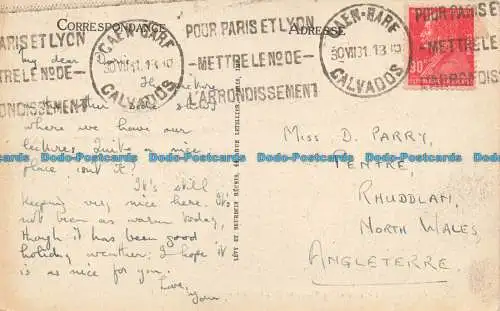 CORRESPONDANCE
ADRESSE
POUR PARIS ET LYON
- METTRE LE No DE -
L'ARRONDISSEMENT
CAEN-GARE
30 VII 31
CALVADOS
PARIS ET LYON
METTRE LE No DE -
RONDISSEMENT
CAEN-GARE
30 VII 31
CALVADOS
POUR PARIS E
- METTRE LE No
L'ARRONDISS
90
My dear
where we have our
lectures. Quite a nice
place, isn't it?
It's still
keeping very nice here. It's
not been as warm today,
though it has been good
holiday weather; I hope it
is as nice for you.
Love,
MISS D. PARRY,
PENTRE,
RHUDDLAN,
NORTH WALES,
ANGLETERRE.
LÉVY ET NEURDEIN RÉUNIS
Dodo-Postcards Dodo-Postcards Dodo-Postcards Dodo-Postcards